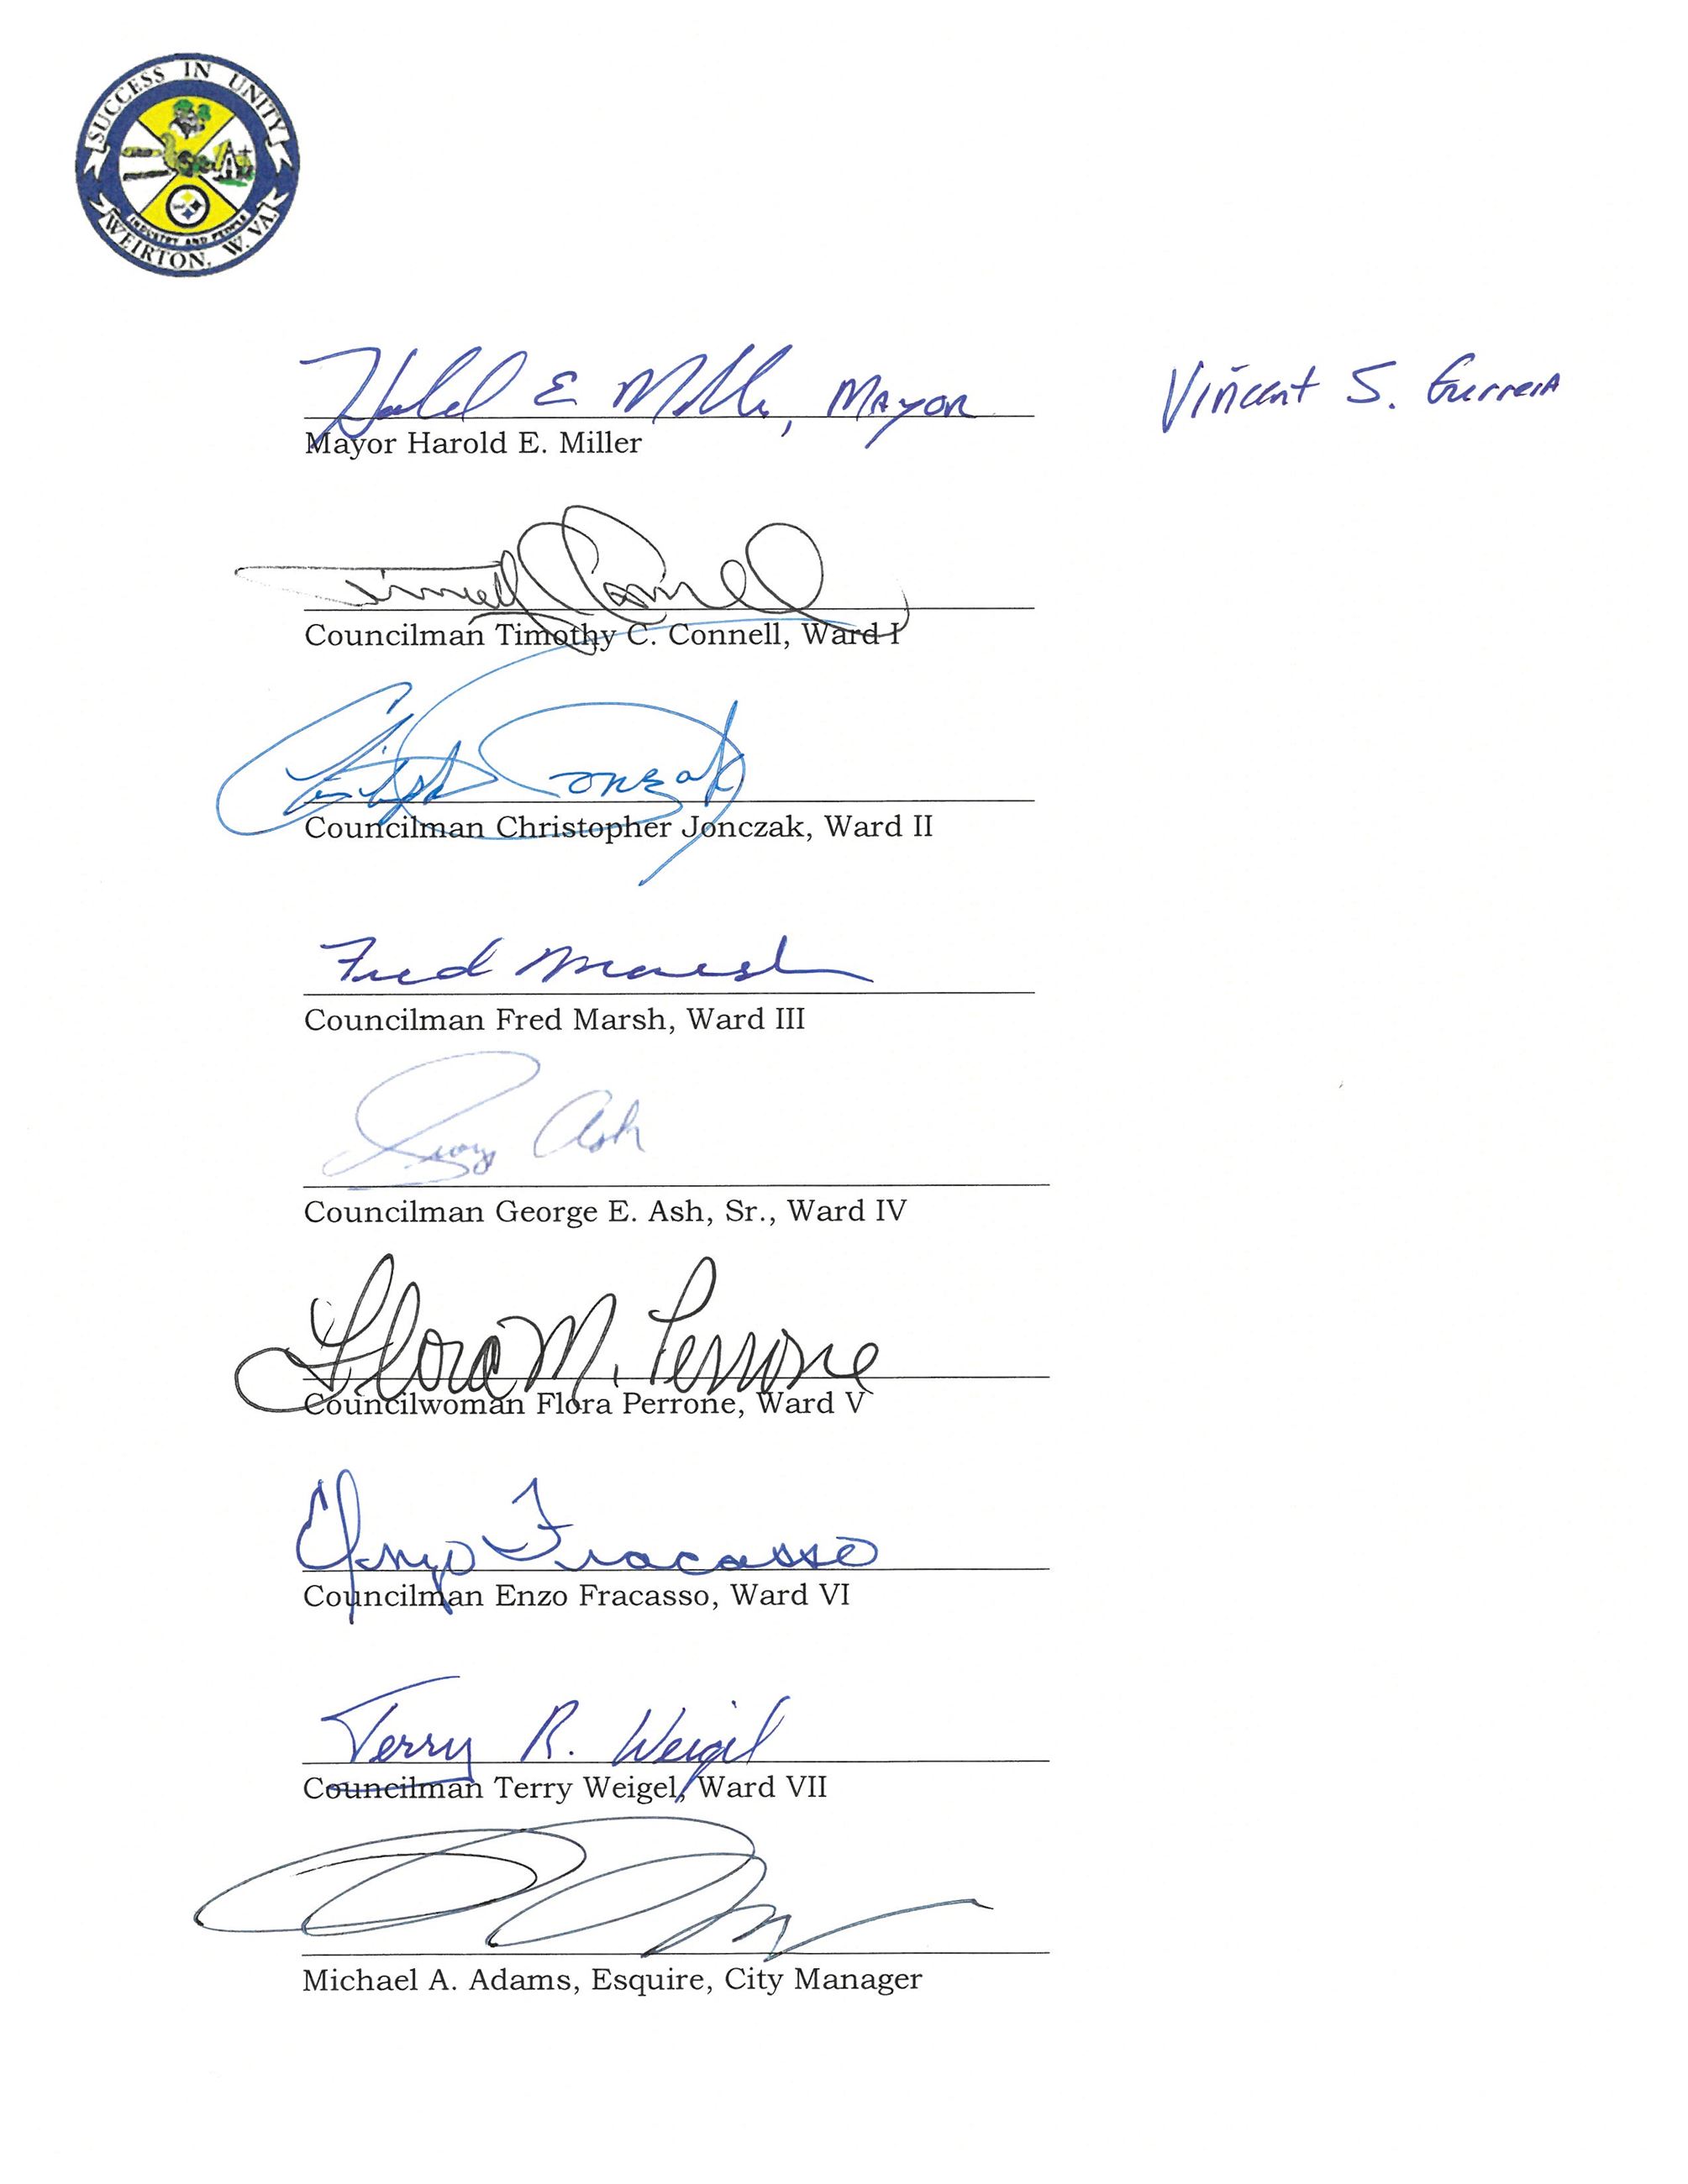 SUCCESS IN UNITY
INDUSTRY AND PEOPLE
WEIRTON, W. VA.
Harold E Miller, Mayor Vincent S.
Mayor Harold E. Miller
Timothy C Connell
Councilman Timothy C. Connell, Ward I
Christopher Jonczak
Councilman Christopher Jonczak, Ward II
Fred Marsh
Councilman Fred Marsh, Ward III
George Ash
Councilman George E. Ash, Sr., Ward IV
Flora M. Perrone
Councilwoman Flora Perrone, Ward V
Enzo Fracasso
Councilman Enzo Fracasso, Ward VI
Terry R. Weigel
Councilman Terry Weigel, Ward VII
Michael A. Adams, Esquire, City Manager